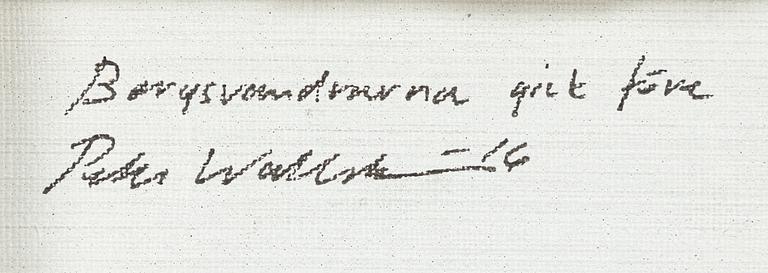 Bergsvandrarna gick före
Peter Wallin -16